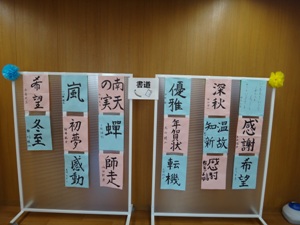 書道
希望
冬至
嵐
初夢
感動
南天
の実
蟬
師走
優雅
年賀状
転機
深秋
温故
知新
感謝
感謝
希望